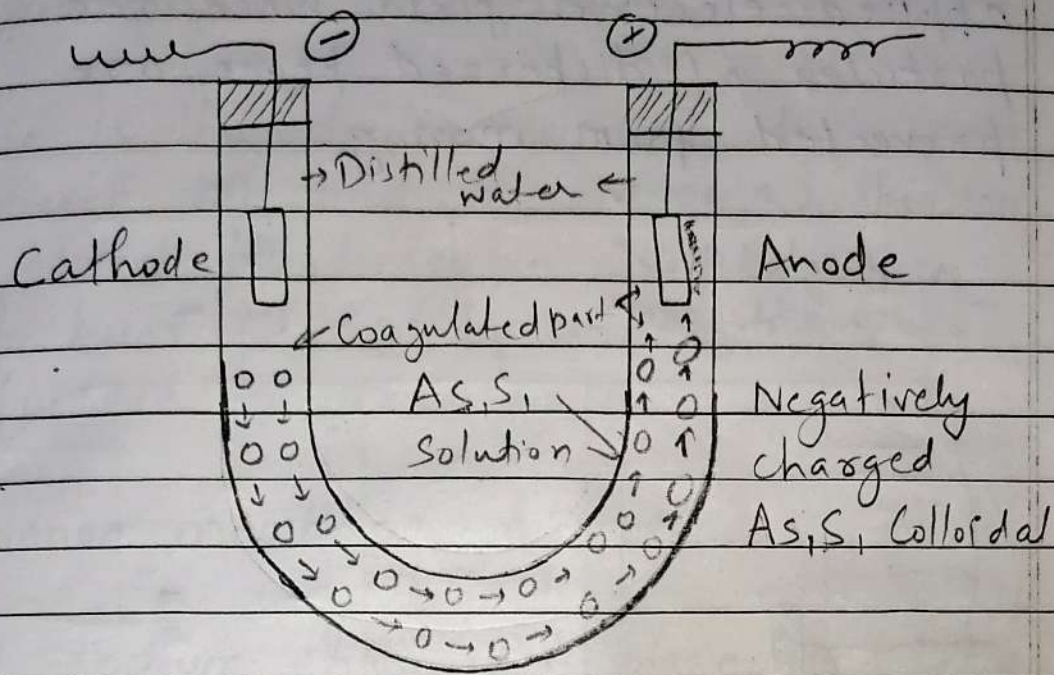 ⊖ ⊕
→ Distilled water ←
Cathode
Anode
Coagulated part
As,S,
Solution
Negatively
charged
As,S, Colloidal